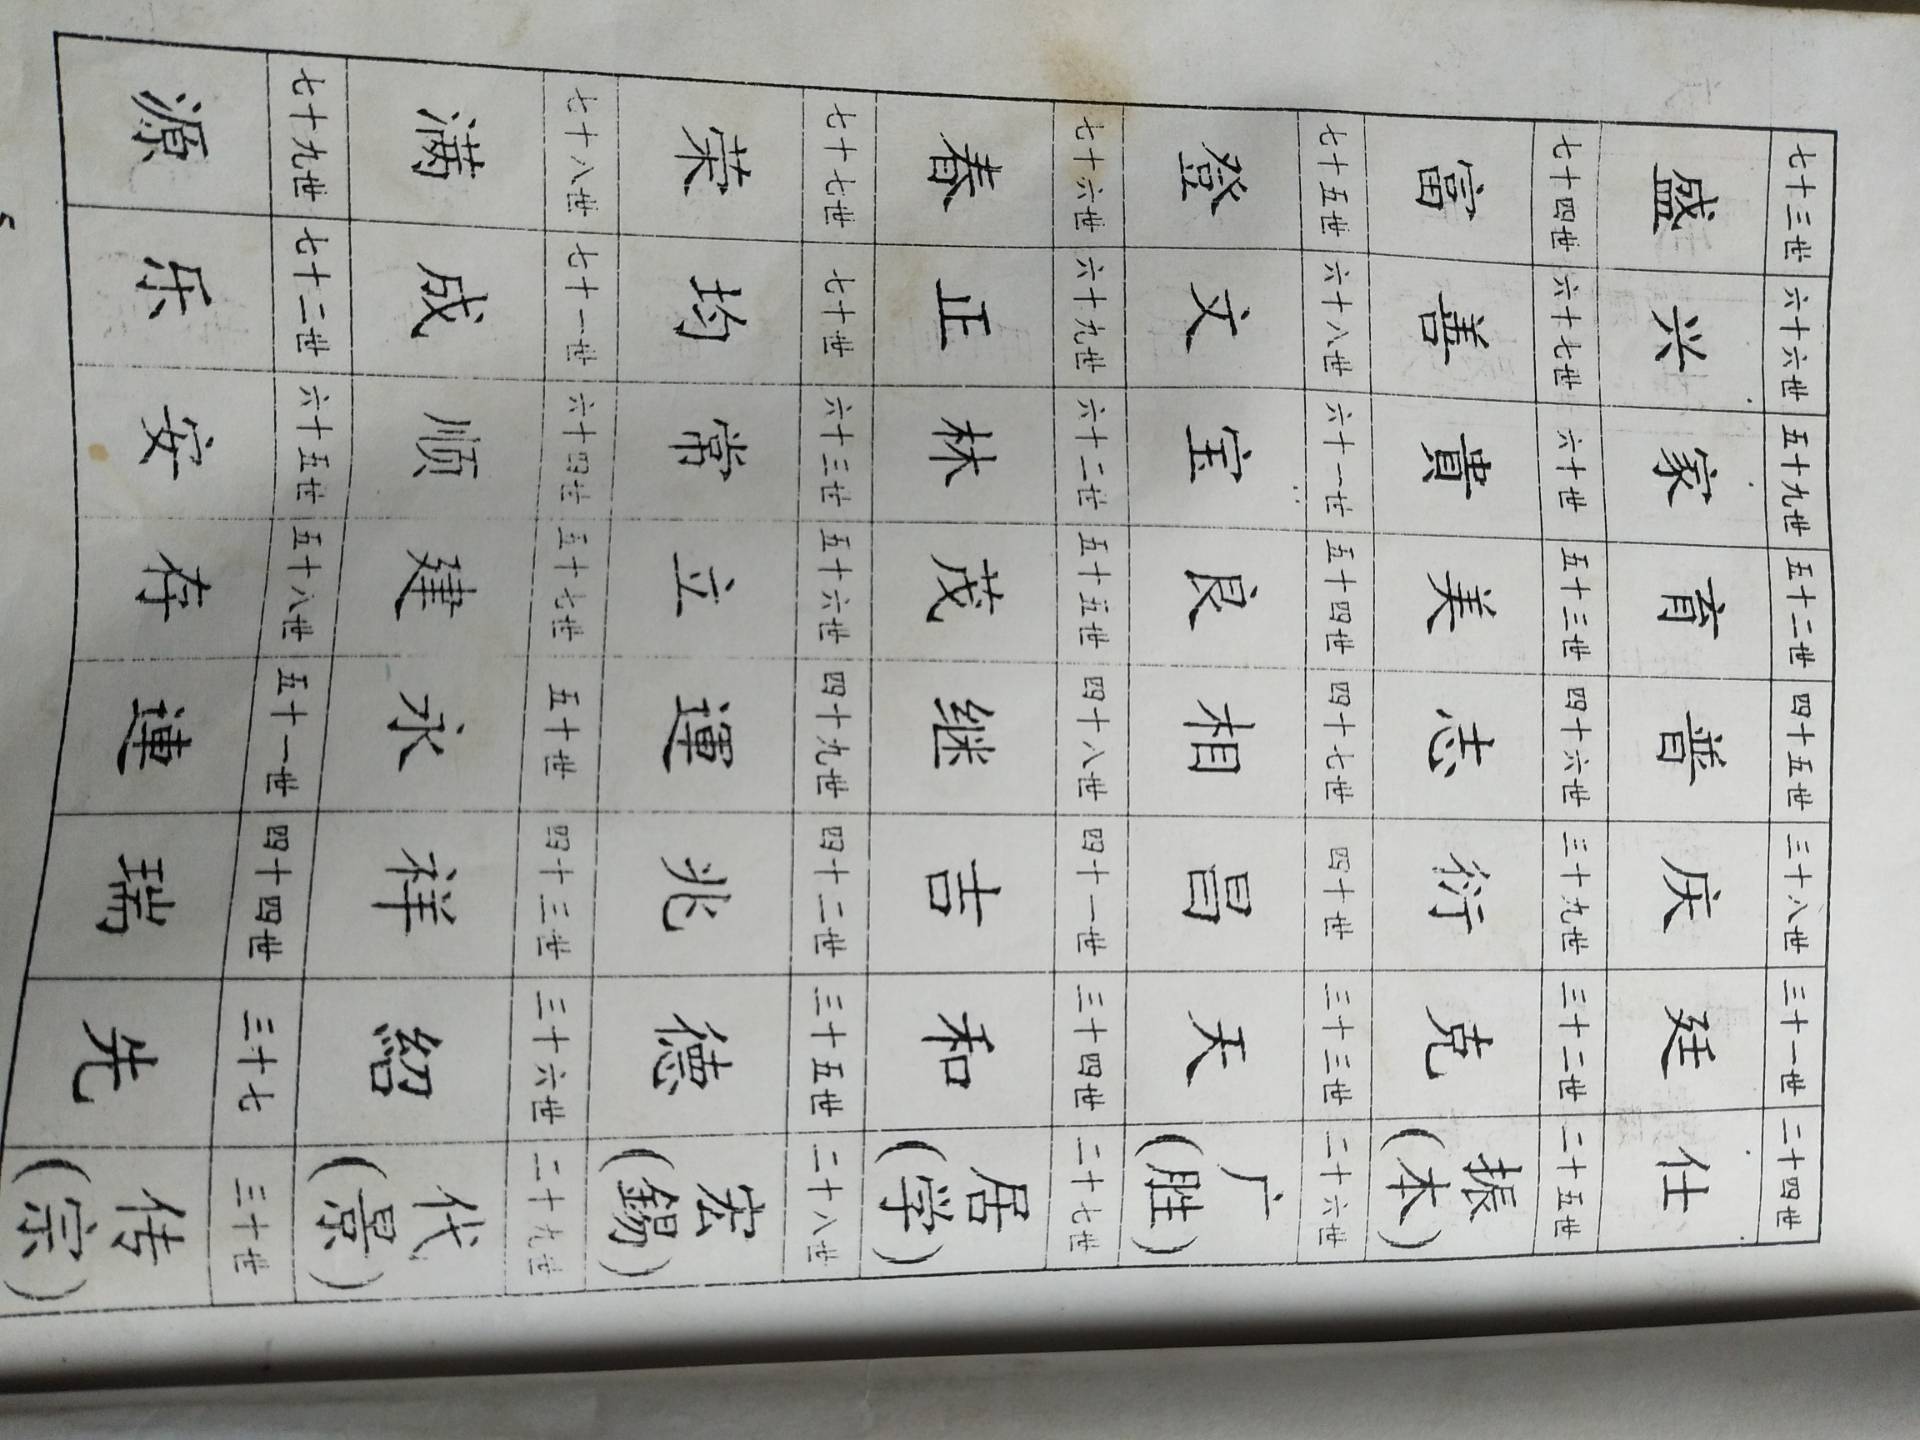 二十四世
仕
二十五世
振
(本)
二十六世
广
(胜)
二十七世
居
(学)
二十八世
宏
(錫)
二十九世
代
(景)
三十世
传
(宗)
三十一世
廷
三十二世
克
三十三世
天
三十四世
和
三十五世
德
三十六世
紹
三十七
先
三十八世
庆
三十九世
衍
四十世
昌
四十一世
吉
四十二世
兆
四十三世
祥
四十四世
瑞
四十五世
普
四十六世
志
四十七世
相
四十八世
继
四十九世
運
五十世
永
五十一世
連
五十二世
育
五十三世
美
五十四世
良
五十五世
茂
五十六世
立
五十七世
建
五十八世
存
五十九世
家
六十世
貴
六十一世
宝
六十二世
林
六十三世
常
六十四世
顺
六十五世
安
六十六世
兴
六十七世
善
六十八世
文
六十九世
正
七十世
均
七十一世
成
七十二世
乐
七十三世
盛
七十四世
富
七十五世
登
七十六世
春
七十七世
荣
七十八世
满
七十九世
源